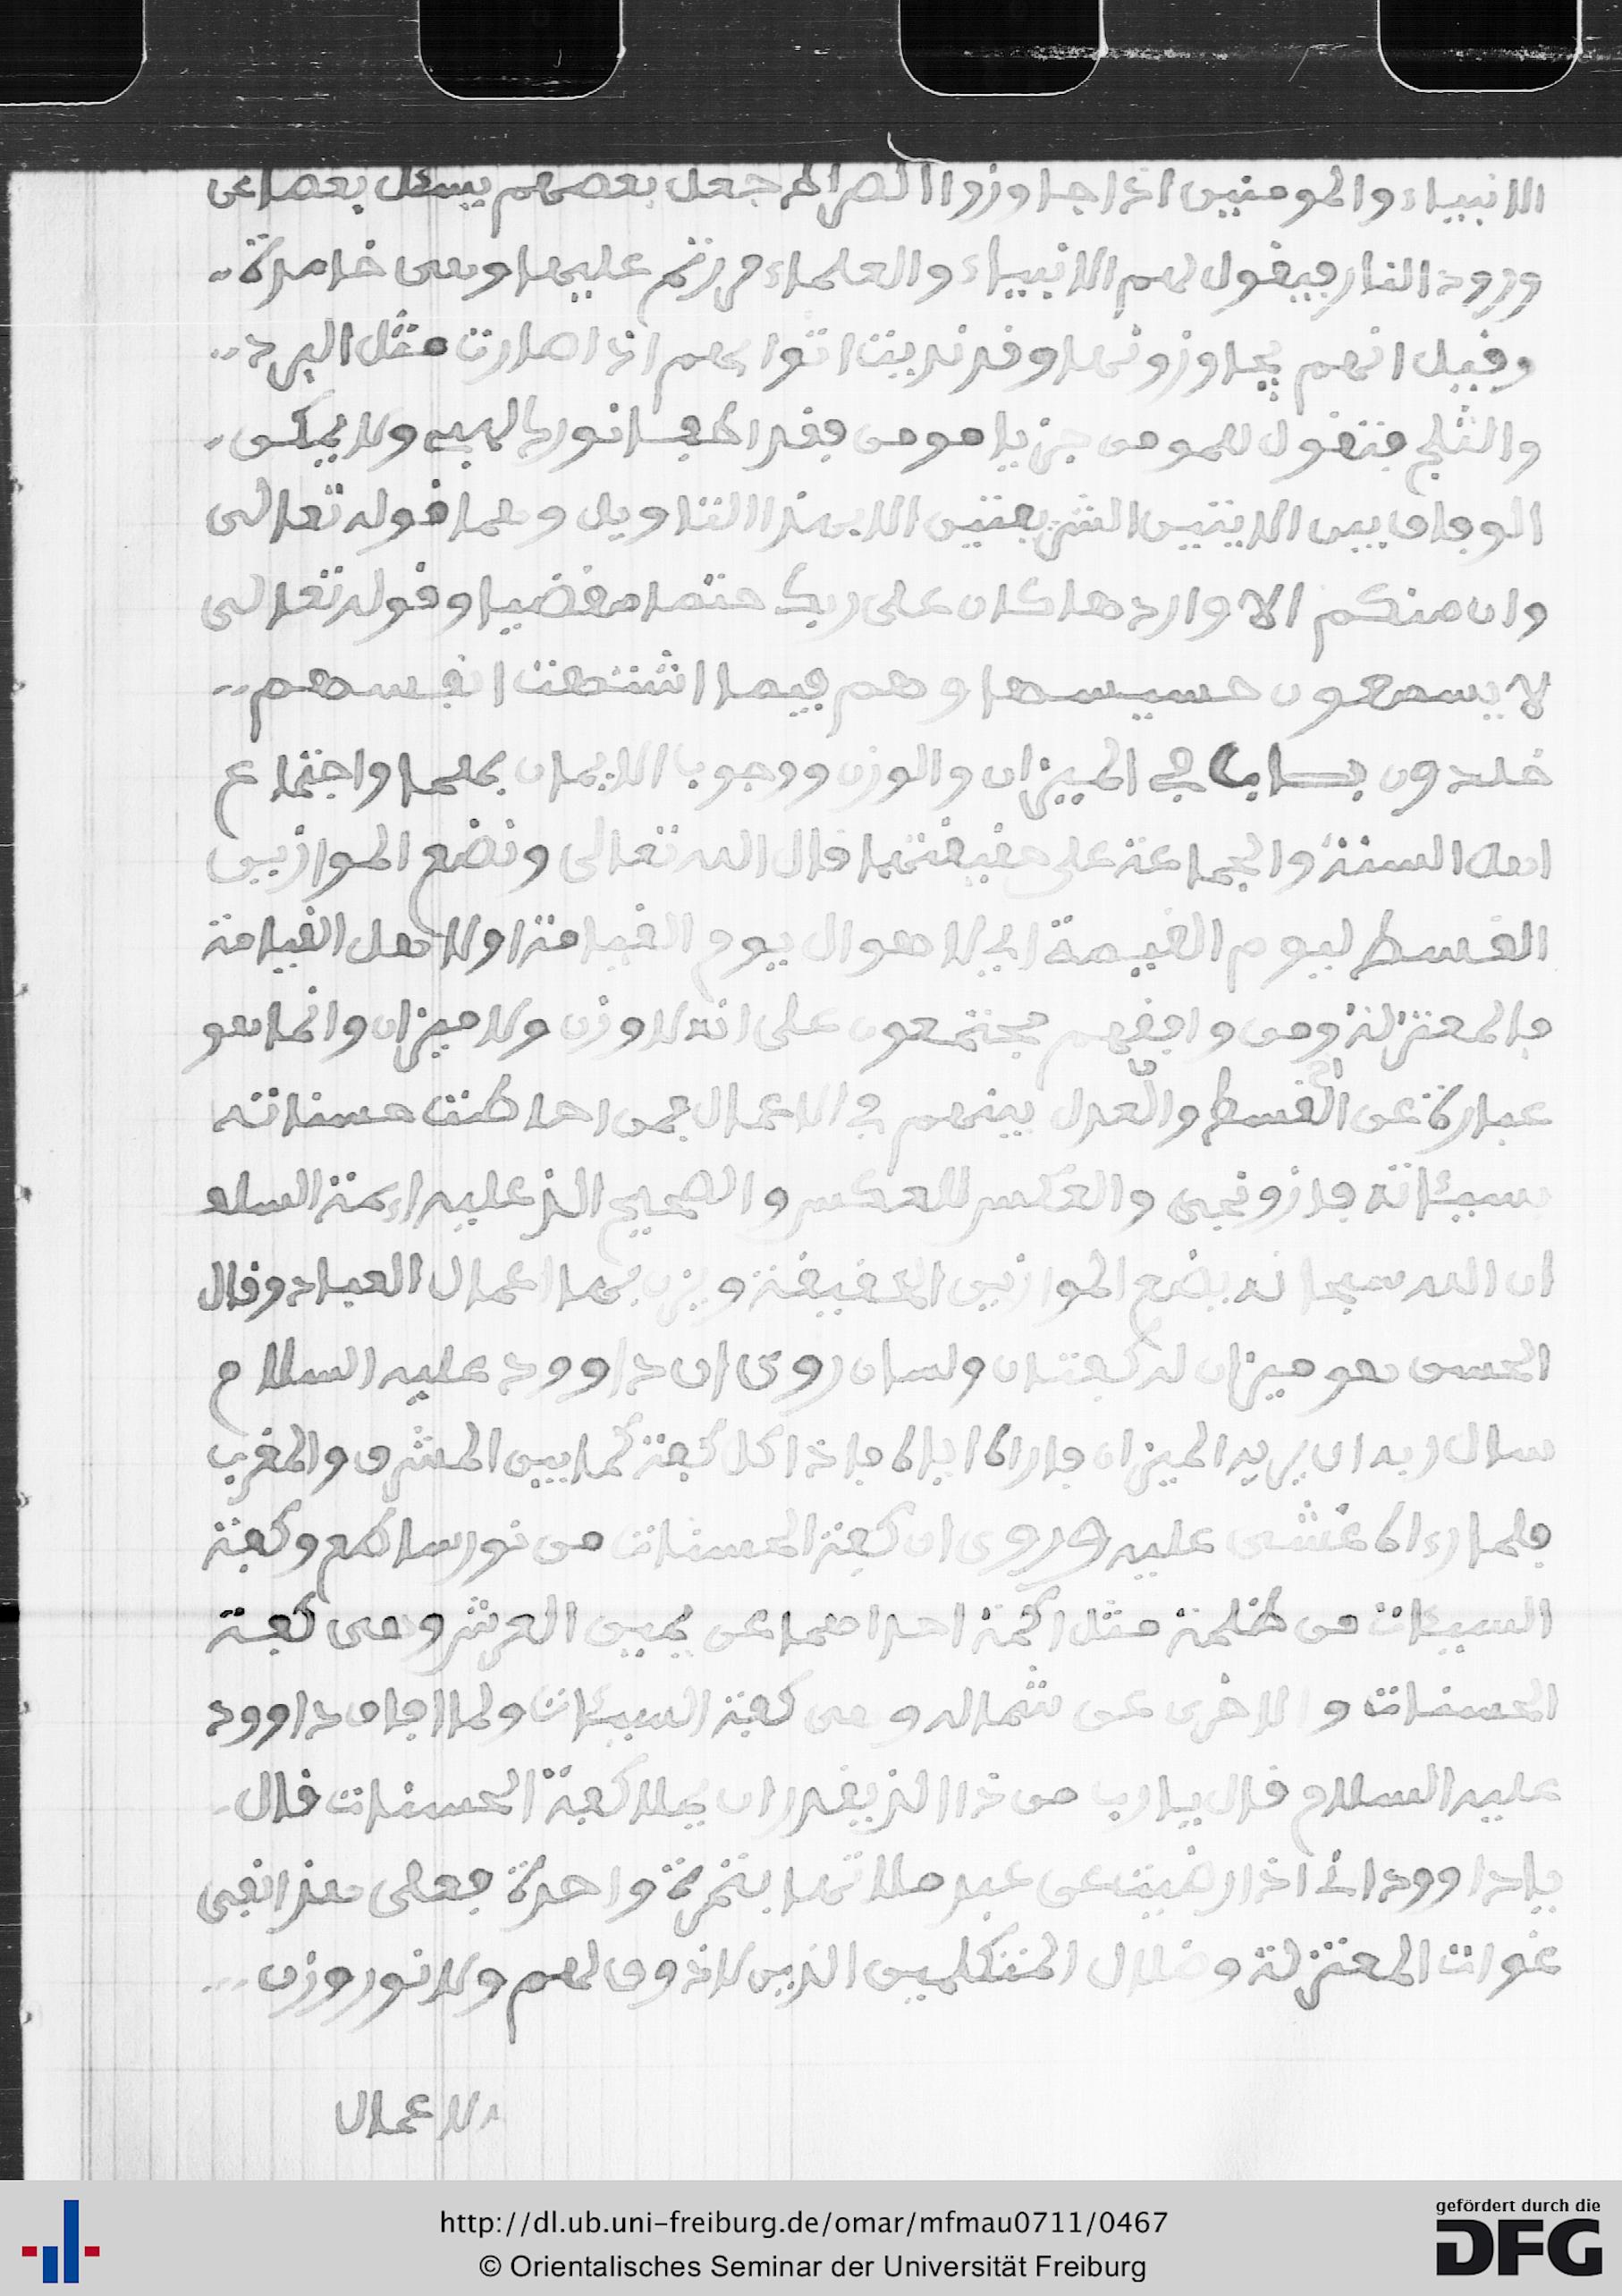 الانبياء والمومنين اذا جاوزوا الصراط جعل بعضهم يسئل بعضا عن
ورود النار فيقول لهم الانبياء والعلماء مررتم عليها وهي خامدة
وقيل انهم يجاوزونها وقد نديت اثوابهم اذا صارت مثل البرد
والثلج فتقول للمومن جز يا مومن فقد اطفا نورك لهبي ولا يمكن
الوفاق بين الايتين الشريفتين الا بهذا التاويل وهما قوله تعالى
وان منكم الا واردها كان على ربك حتما مقضيا وقوله تعالى
لا يسمعون حسيسها وهم فيما اشتهت انفسهم
خلدون باب في الميزان والوزن ووجوب الايمان بهما واجتماع
اهل السنة والجماعة على حقيقتهما قال الله تعالى ونضع الموازين
القسط ليوم القيمة اي لاهوال يوم القيامة او لاهل القيامة
فالمعتزلة ومن وافقهم مجتمعون على انه لا وزن ولا ميزان وانما هو
عبارة عن القسط والعدل بينهم في الاعمال فمن احاطت حسناته
بسيئاته فاز ونجى والعكس للعكس والصحيح الذي عليه ايمة السلف
ان الله سبحانه يضع الموازين الحقيقة ويزن بها اعمال العباد وقال
الحسن هو ميزان له كفتان ولسان روى ان داوود عليه السلام
سال ربه ان يريه الميزان فاراه اياه فاذا كل كفة كما بين المشرق والمغرب
فلما رءاه غشى عليه وروى ان كفة الحسنات من نور ساطع وكفة
السيئات من ظلمة مثل اكمة احداهما عن يمين العرش وهي كفة
الحسنات والاخرى عن شماله وهي كفة السيئات ولما افاق داوود
عليه السلام قال يارب من ذا الذي يقدر ان يملا كفة الحسنات قال
يا داوود اني اذا رضيت عن عبد ملاتها بتمرة واحدة فعلى هذا انفى
غوات المعتزلة وضلال المتكلمين الذين لا ذوق لهم ولا نور وزن
الاعمال
http://dl.ub.uni-freiburg.de/omar/mfmau0711/0467
© Orientalisches Seminar der Universität Freiburg
gefördert durch die
DFG